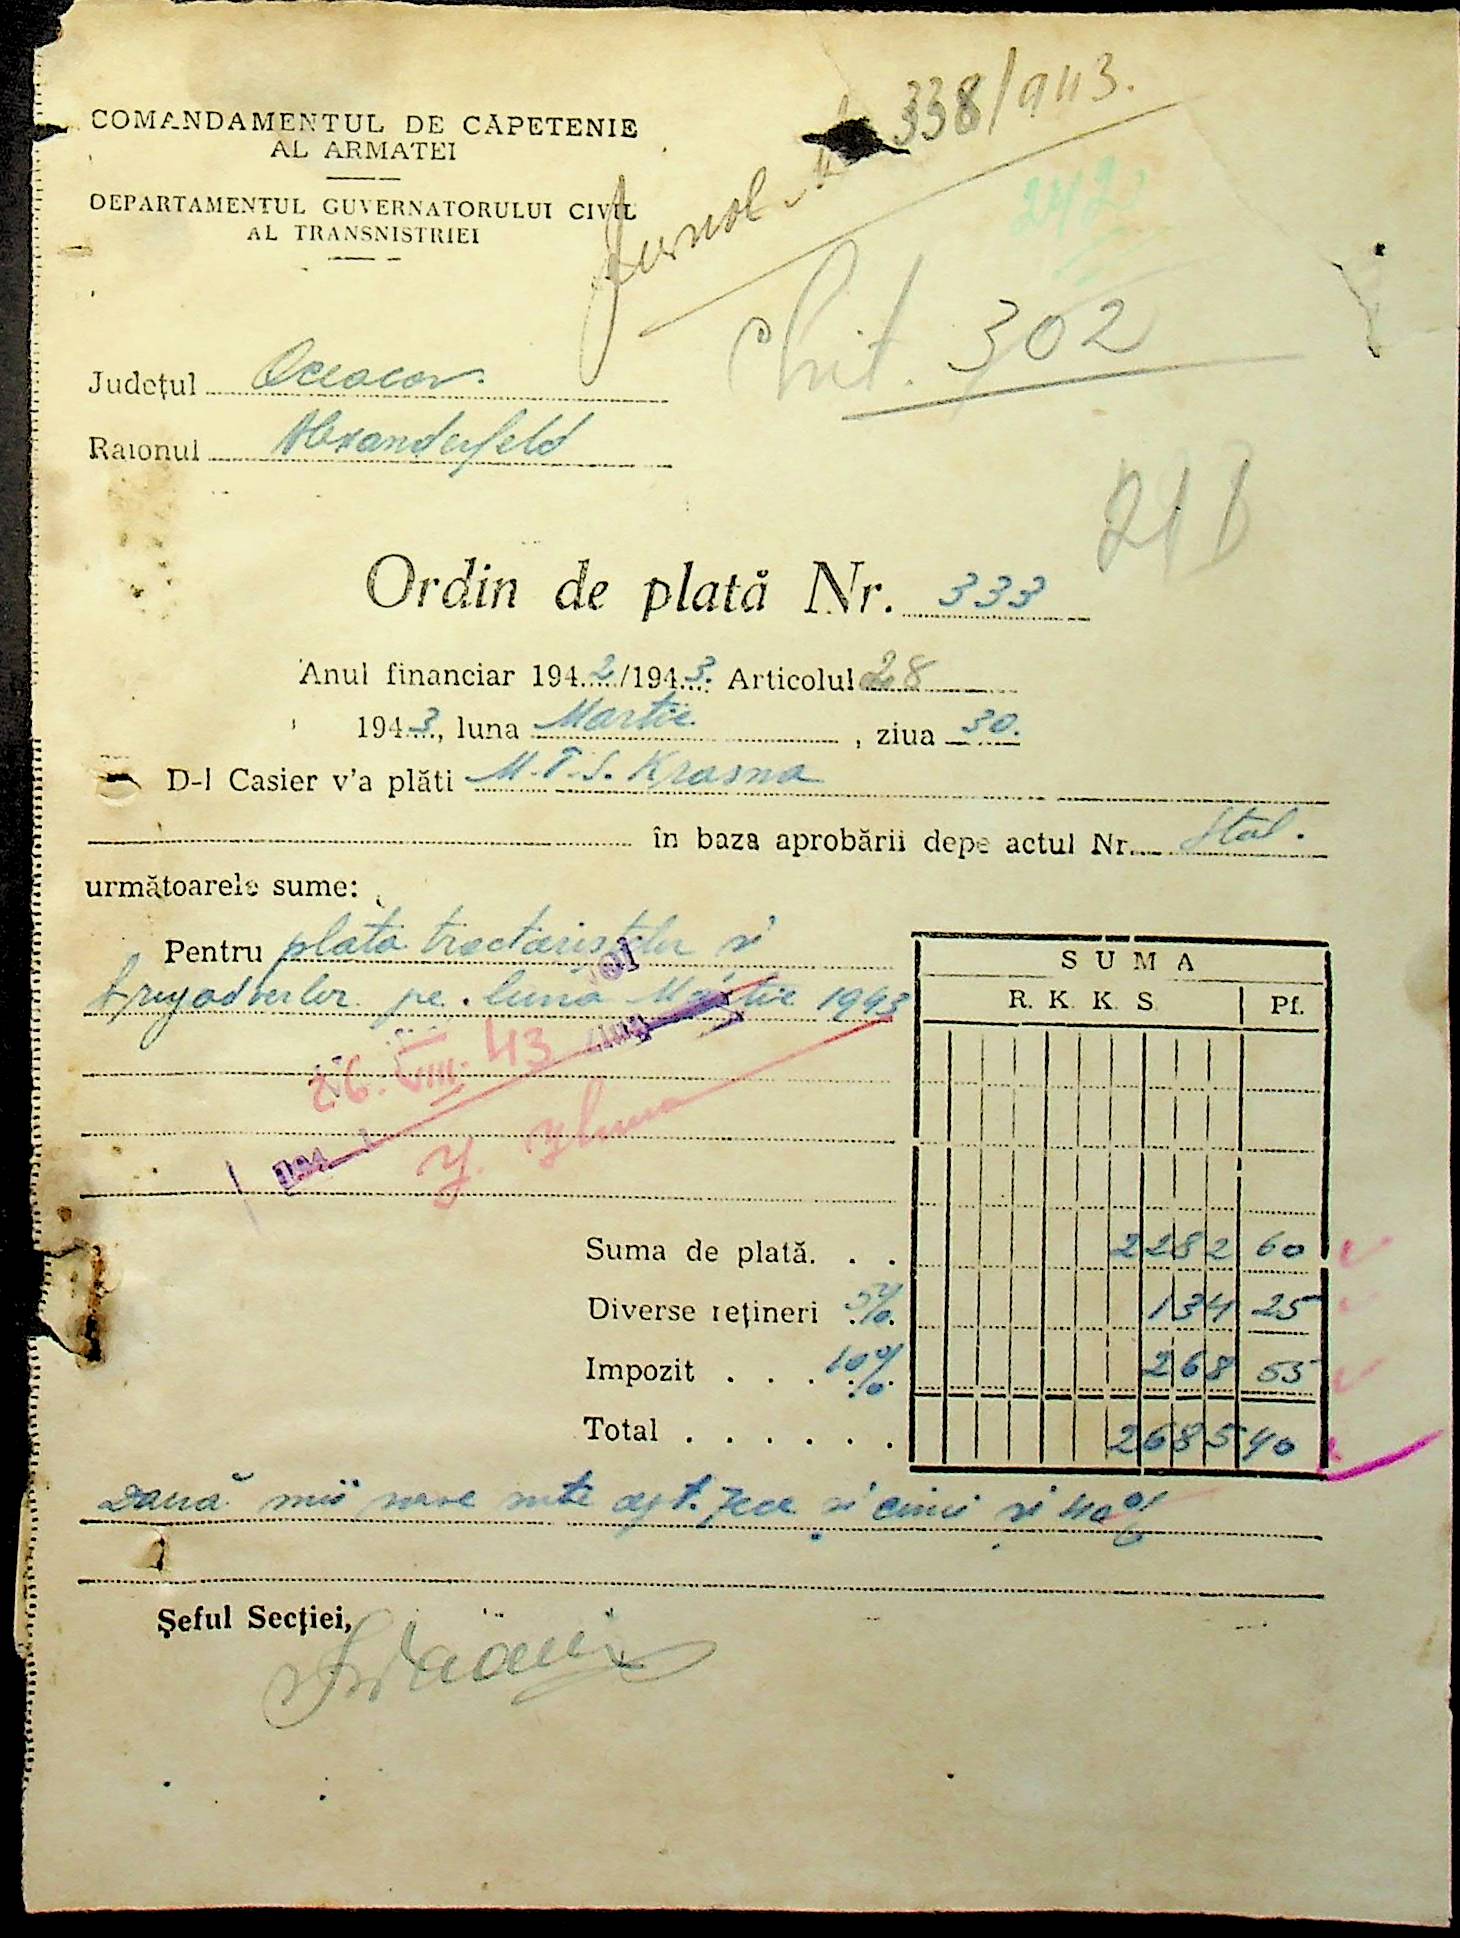 COMANDAMENTUL DE CĂPETENIE
AL ARMATEI
DEPARTAMENTUL GUVERNATORULUI CIVIL
AL TRANSNISTRIEI
Jurnal 338/943.
242
Chit. 302
Județul Oceacov.
Raionul Alexanderfeld
Ordin de plată Nr. 333
Anul financiar 1942/1943. Articolul 28
1943, luna Martie, ziua 30.
D-l Casier v'a plăti M.T.S. Krasna
în baza aprobării depe actul Nr. Stat.
următoarele sume:
Pentru plata tractoriștilor și
brigadierilor pe luna Martie 1943
26. VIII. 43
SUMA
R. K. K. S. Pf.
Suma de plată. . . 2282 60
Diverse rețineri 5% 134 25
Impozit . . . 10% 268 55
Total . . . . . . . 2685 40
Două mii șase sute opt zece și cinci și 40%
Șeful Secției,